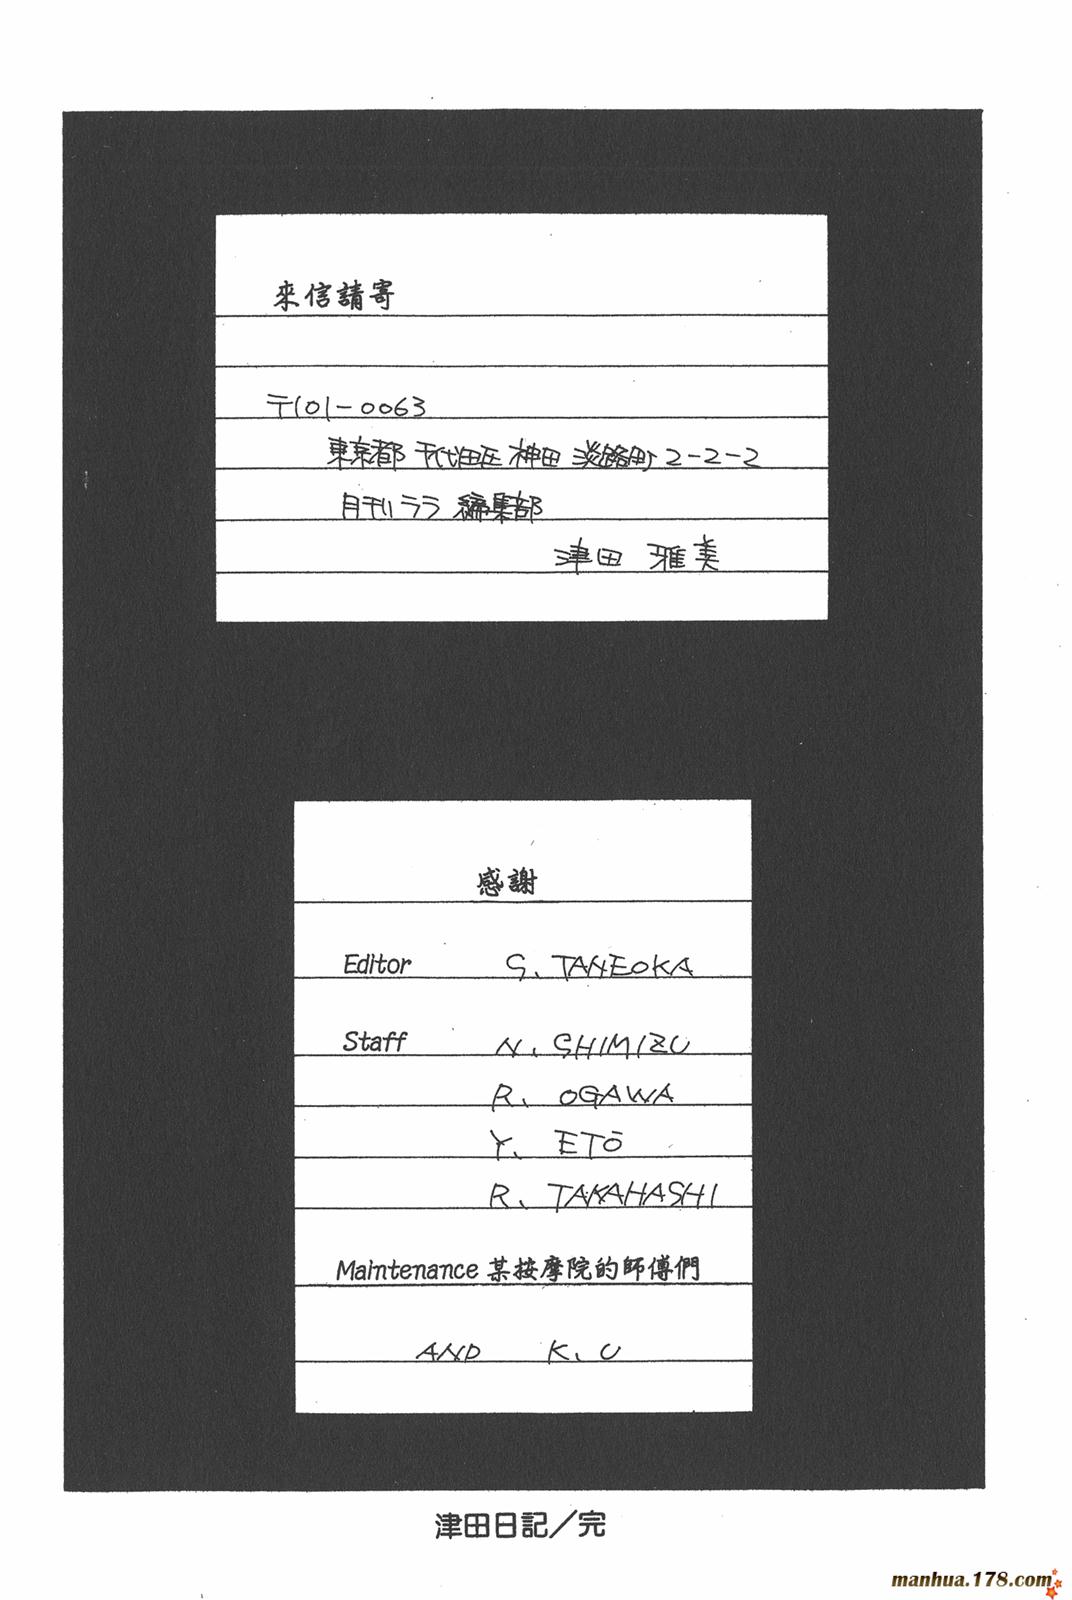 來信請寄
〒101-0063
東京都 千代田区 神田 淡路町 2-2-2
月刊ララ 編集部
津田 雅美
感謝
Editor S. TANEOKA
Staff N. SHIMIZU
R. OGAWA
Y. ETŌ
R. TAKAHASHI
Maintenance 某按摩院的師傅們
AND K. U
津田日記／完
manhua.178.com